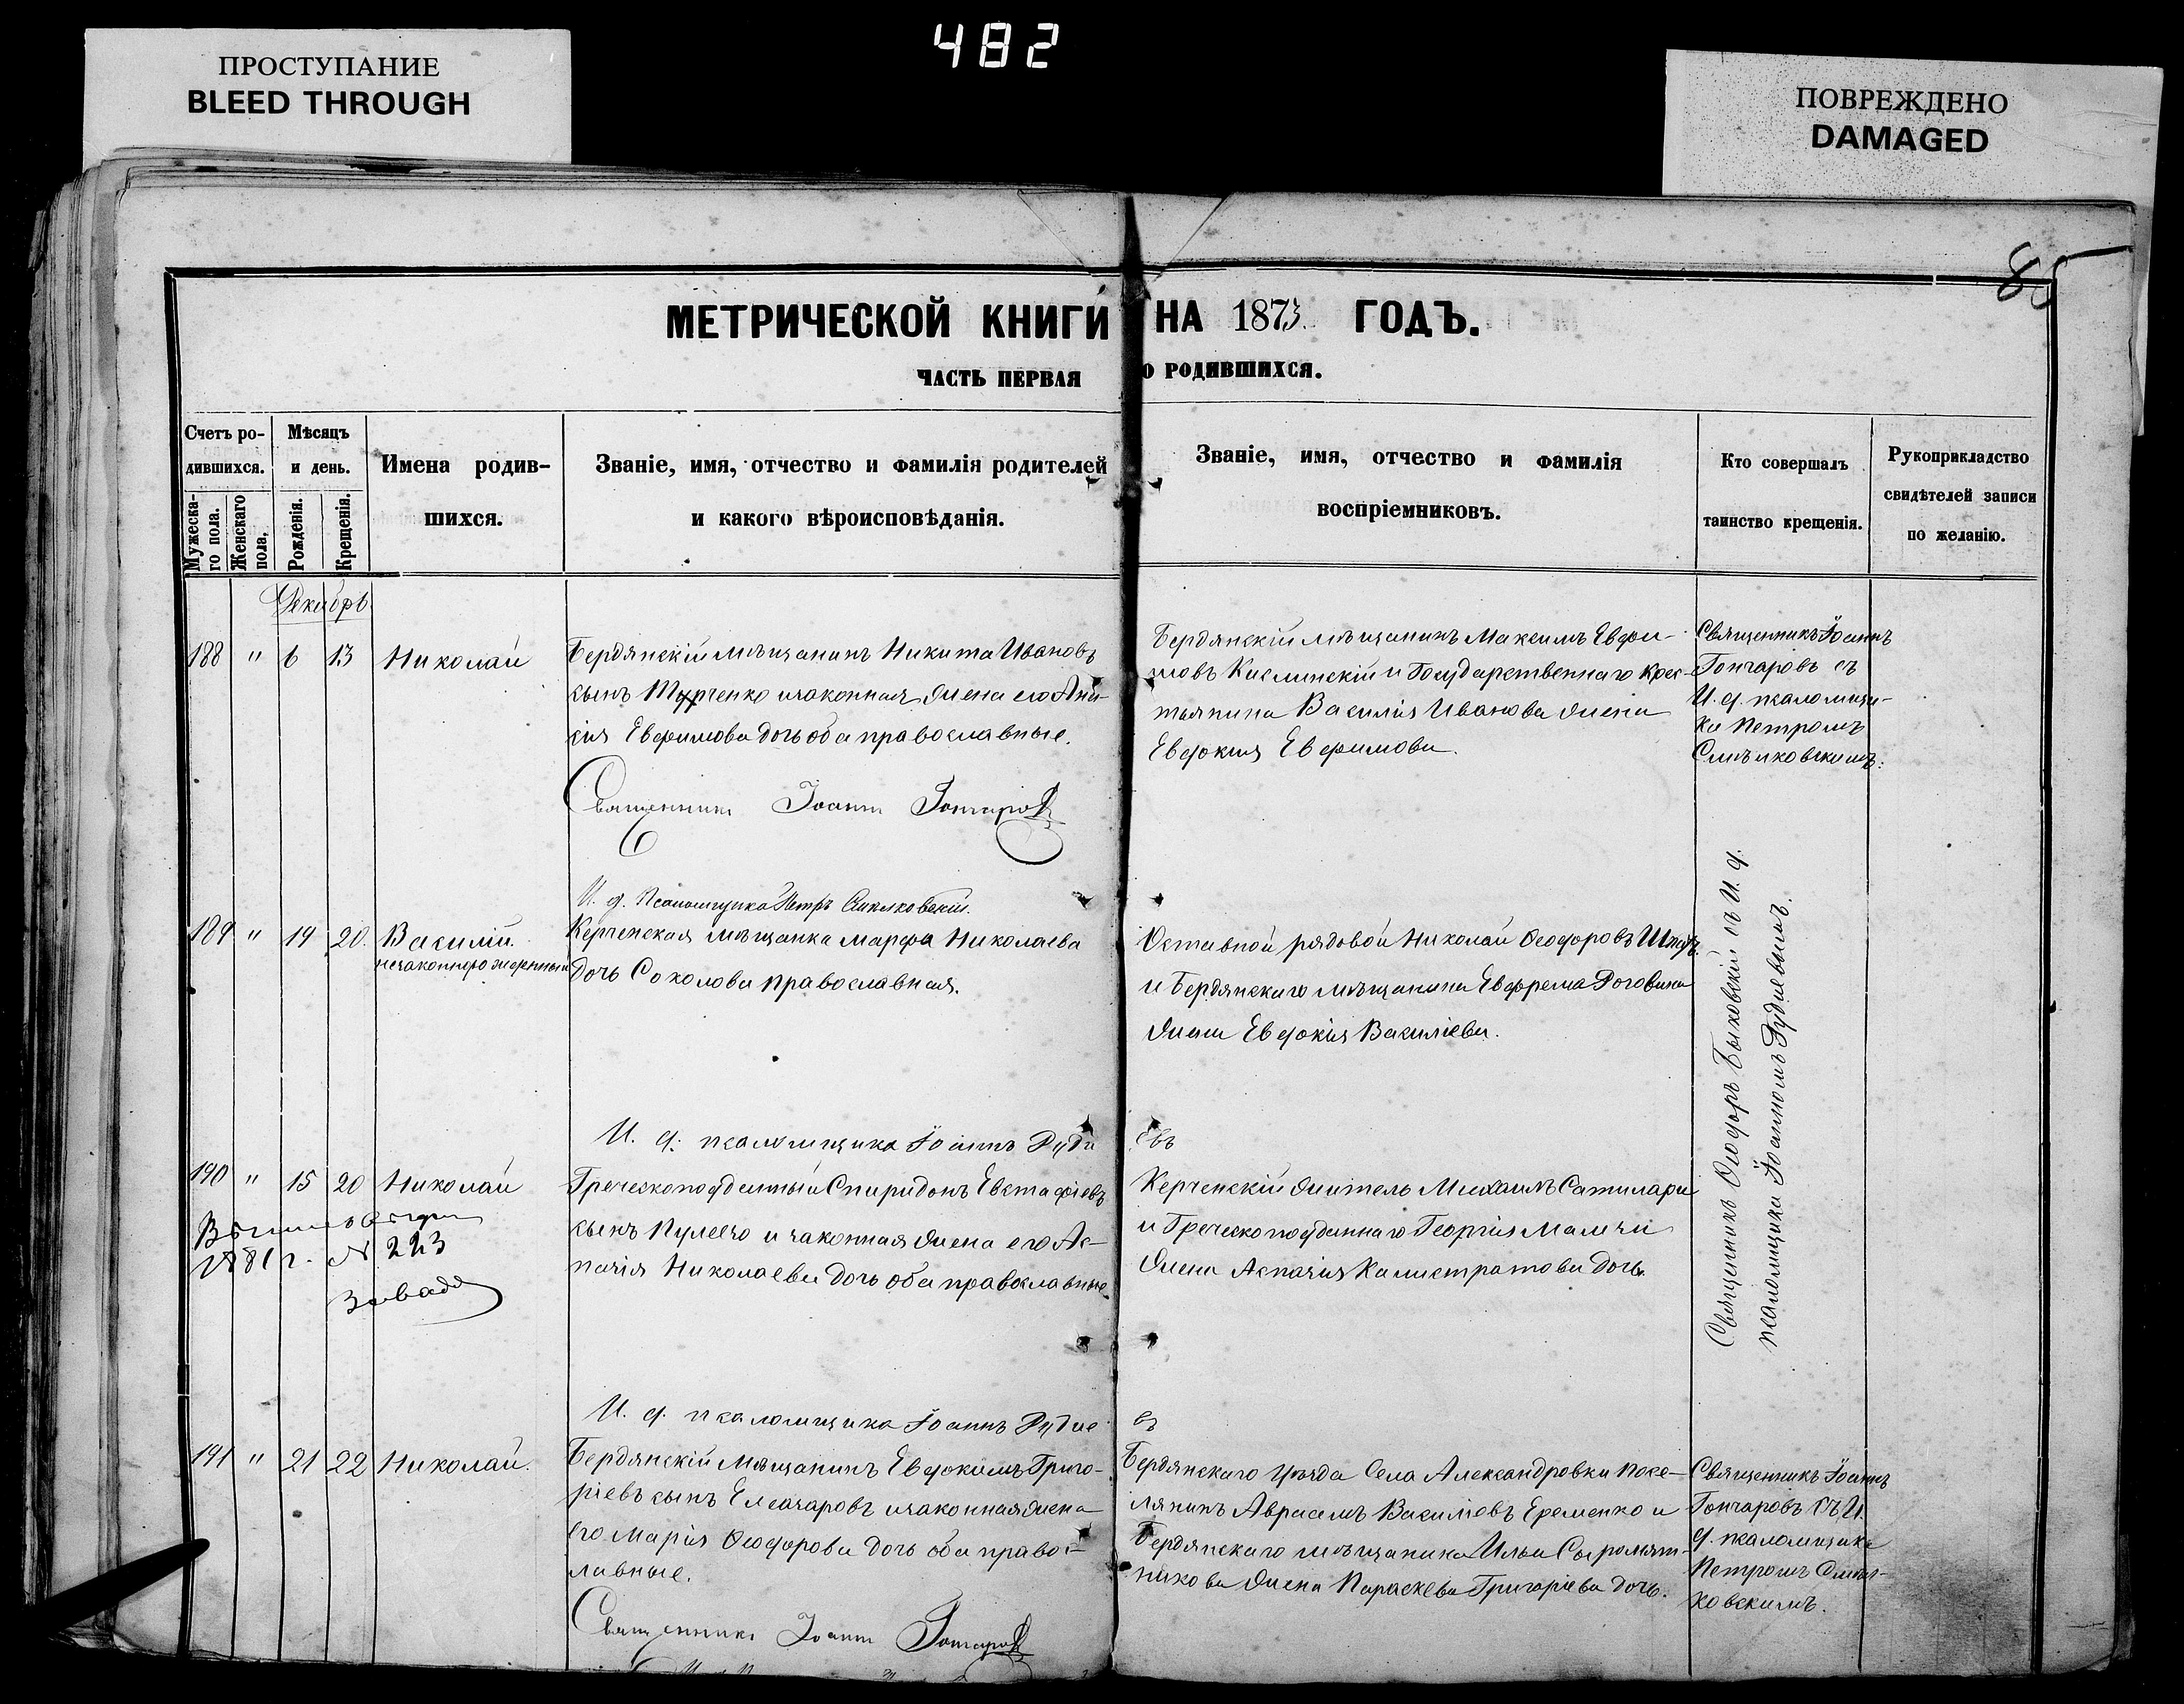 482
ПРОСТУПАНИЕ
BLEED THROUGH
ПОВРЕЖДЕНО
DAMAGED
МЕТРИЧЕСКОЙ КНИГИ НА 1873 ГОДЪ.
ЧАСТЬ ПЕРВАЯ О РОДИВШИХСЯ.
Счетъ ро-
дившихся.
Мужеска-
го пола.
Женскаго
пола.
Мѣсяцъ
и день.
Рожденія.
Крещенія.
Имена родив-
шихся.
Званіе, имя, отчество и фамилія родителей
и какого вѣроисповѣданія.
Званіе, имя, отчество и фамилія
воспріемниковъ.
Кто совершалъ
таинство крещенія.
Рукоприкладство
свидѣтелей записи
по желанію.
Декабрь
188 " 6 13 Николай
Бердянскій мѣщанинъ Никита Ивановъ
сынъ законная жена его Ани-
сія Евфимова дочь оба православные.
Священникъ Іоаннъ Гончаровъ
Бердянскій мѣщанинъ Максимъ Евфи-
мовъ Кислинскій и Государственнаго крес-
тьянина Василія Иванова жена
Евдокія Евфимова.
Священникъ Іоаннъ
Гончаровъ съ
И. д. псаломщи-
ка Петромъ
И. д. Псаломщика Петръ
189 " 19 20. Василій.
незаконнорожденный
Керченская мѣщанка Марфа Николаева
дочь Соколова православная.
Отставной рядовой Николай Ѳеодоровъ
и Бердянскаго мѣщанина Евфрема Роговина
жена Евдокія Василіева.
Священникъ Ѳеодоръ Быковскій съ И. д.
псаломщика Іоанномъ Рудиевымъ.
И. д. псаломщика Іоаннъ Рудиевъ
190 " 15 20 Николай
1881 г. № 223
Завада
Греческоподданный Спиридонъ Евстафіевъ
сынъ и законная жена его Ас-
пазія Николаева дочь оба православные.
Керченскій житель Михаилъ Сатилари
и Греческоподданнаго Георгія
жена Аспазія Калистратова дочь.
И. д. псаломщика Іоаннъ Рудиевъ
191 " 21 22 Николай.
Бердянскій мѣщанинъ Евдокимъ Григо-
ріевъ сынъ Елеазаровъ и законная жена
его Марія Ѳеодорова дочь оба правос-
лавные.
Священникъ Іоаннъ Гончаровъ
Бердянскаго уѣзда Села Александровки посе-
лянинъ Авраамъ Василіевъ Еременко и
Бердянскаго мѣщанина Ильи Сыромят-
никова жена Параскева Григоріева дочь.
Священникъ Іоаннъ
Гончаровъ съ И.
д. псаломщика
Петромъ